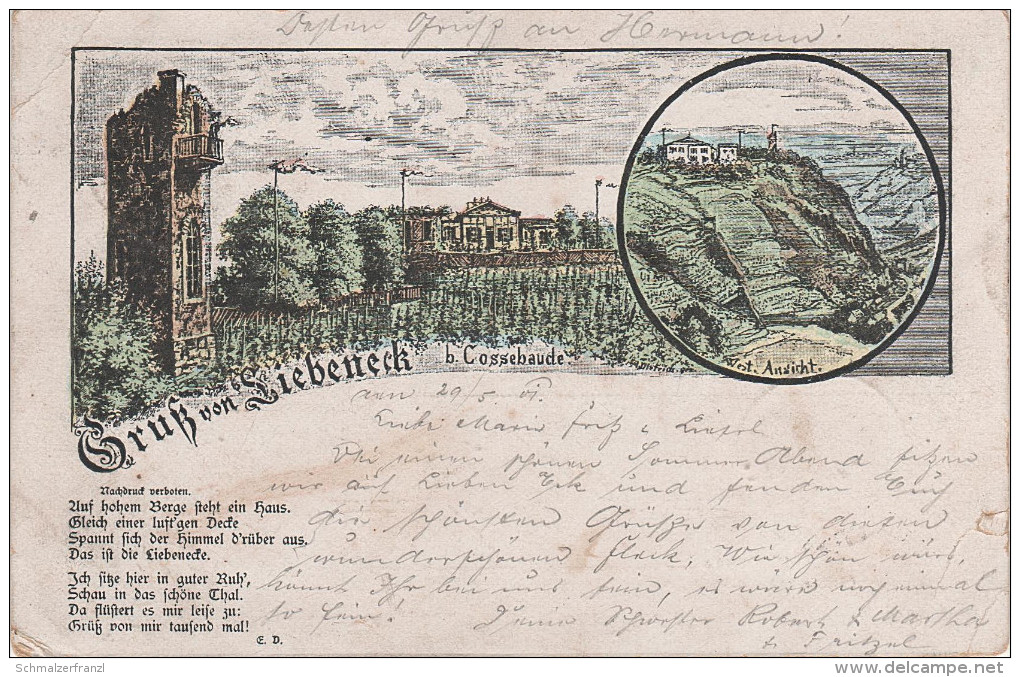 Besten Gruß an Hermann!
West. Ansicht.
Gruß von Liebeneck b. Cossebaude
29/5. 01.
Liebe Marie Fritz u Liesel
Bei einen schönen Sommer Abend sitzen
wir auf Lieben Eck und senden Euch
die schönsten Grüße von diesen
wunderschönen Fleck. Wie schön wäre,
könnt Ihr bei uns sein, es wäre noch einmal
so fein! Deine Schwester Robert & Martha
& Fritzel
Nachdruck verboten.
Auf hohem Berge steht ein Haus.
Gleich einer luft'gen Decke
Spannt sich der Himmel d'rüber aus,
Das ist die Liebenecke.
Ich sitze hier in guter Ruh',
Schau in das schöne Thal.
Da flüstert es mir leise zu:
Grüß von mir tausend mal!
E. D.
Schmalzerfranzl
www.delcampe.net